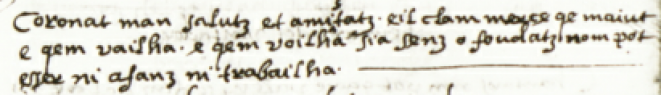 Coronat man salutz et amistatz. e il clam merce qe maiut
e qem vailha. e qem voilha Sia senz o foudatz nom pot
esser ni afanz ni trabailha.